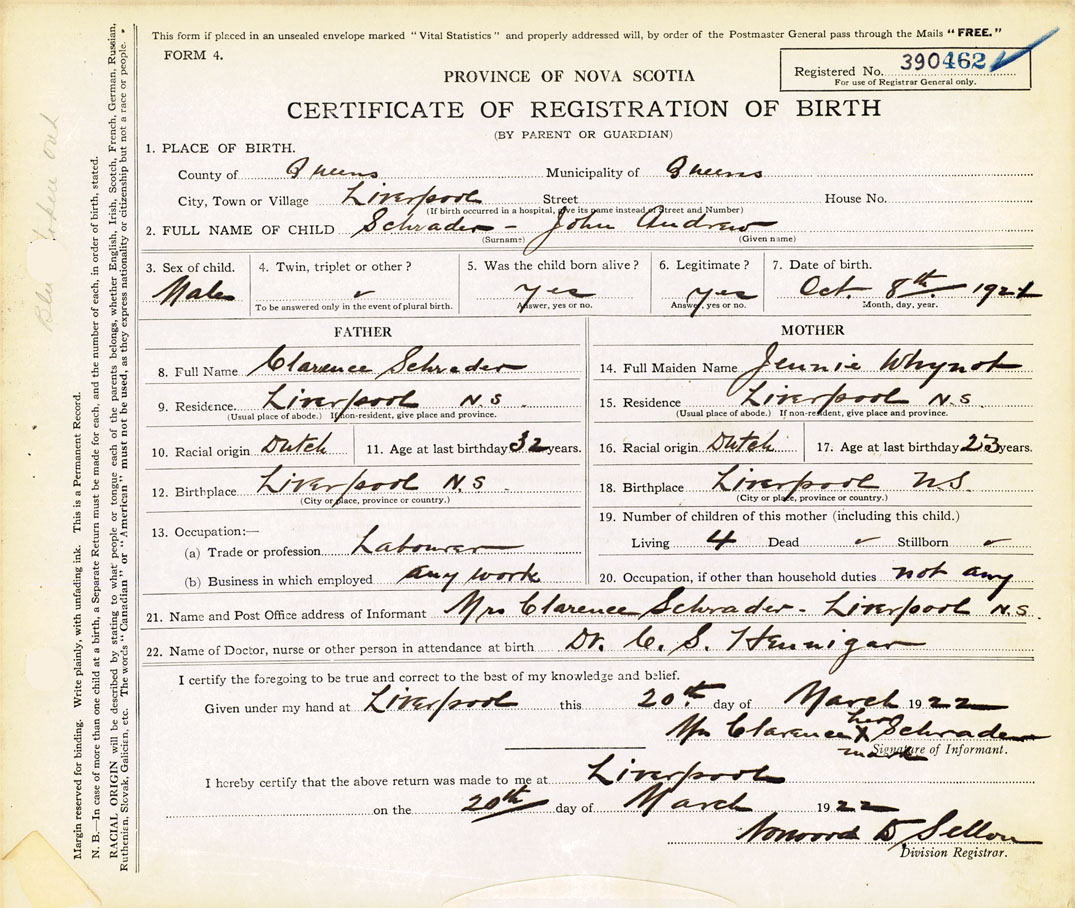 This form if placed in an unsealed envelope marked "Vital Statistics" and properly addressed will, by order of the Postmaster General pass through the Mails "FREE."
FORM 4.
Registered No. 390462
For use of Registrar General only.
PROVINCE OF NOVA SCOTIA
CERTIFICATE OF REGISTRATION OF BIRTH
(BY PARENT OR GUARDIAN)
1. PLACE OF BIRTH.
County of Queens Municipality of Queens
City, Town or Village Liverpool Street House No.
(If birth occurred in a hospital, give its name instead of Street and Number)
2. FULL NAME OF CHILD Schrader - John Andrew
(Surname) (Given name)
3. Sex of child. 4. Twin, triplet or other? 5. Was the child born alive? 6. Legitimate? 7. Date of birth.
Male ✓ yes yes Oct. 8th 1921
To be answered only in the event of plural birth. Answer, yes or no. Answer, yes or no. Month, day, year.
FATHER MOTHER
8. Full Name Clarence Schrader 14. Full Maiden Name Jennie Whynot
9. Residence. Liverpool N.S. 15. Residence Liverpool N.S.
(Usual place of abode.) If non-resident, give place and province. (Usual place of abode.) If non-resident, give place and province.
10. Racial origin Dutch 11. Age at last birthday 32 years. 16. Racial origin Dutch 17. Age at last birthday 23 years.
12. Birthplace Liverpool N.S 18. Birthplace Liverpool N.S.
(City or place, province or country.) (City or place, province or country.)
13. Occupation:— 19. Number of children of this mother (including this child.)
(a) Trade or profession Labourer Living 4 Dead ✓ Stillborn ✓
(b) Business in which employed any work 20. Occupation, if other than household duties not any
21. Name and Post Office address of Informant Mrs Clarence Schrader - Liverpool N.S.
22. Name of Doctor, nurse or other person in attendance at birth Dr. C. S. Hennigar
I certify the foregoing to be true and correct to the best of my knowledge and belief.
Given under my hand at Liverpool this 20th day of March 1922
her
Mrs Clarence X Schrader
mark
Signature of Informant.
I hereby certify that the above return was made to me at Liverpool
on the 20th day of March 1922
Division Registrar.
Margin reserved for binding. Write plainly, with unfading ink. This is a Permanent Record.
N. B.—In case of more than one child at a birth, a Separate Return must be made for each, and the number of each, in order of birth, stated.
RACIAL ORIGIN will be described by stating to what people or tongue each of the parents belongs, whether English, Irish, Scotch, French, German, Russian,
Ruthenian, Slovak, Galician, etc. The words "Canadian" or "American" must not be used, as they express nationality or citizenship but not a race or people.